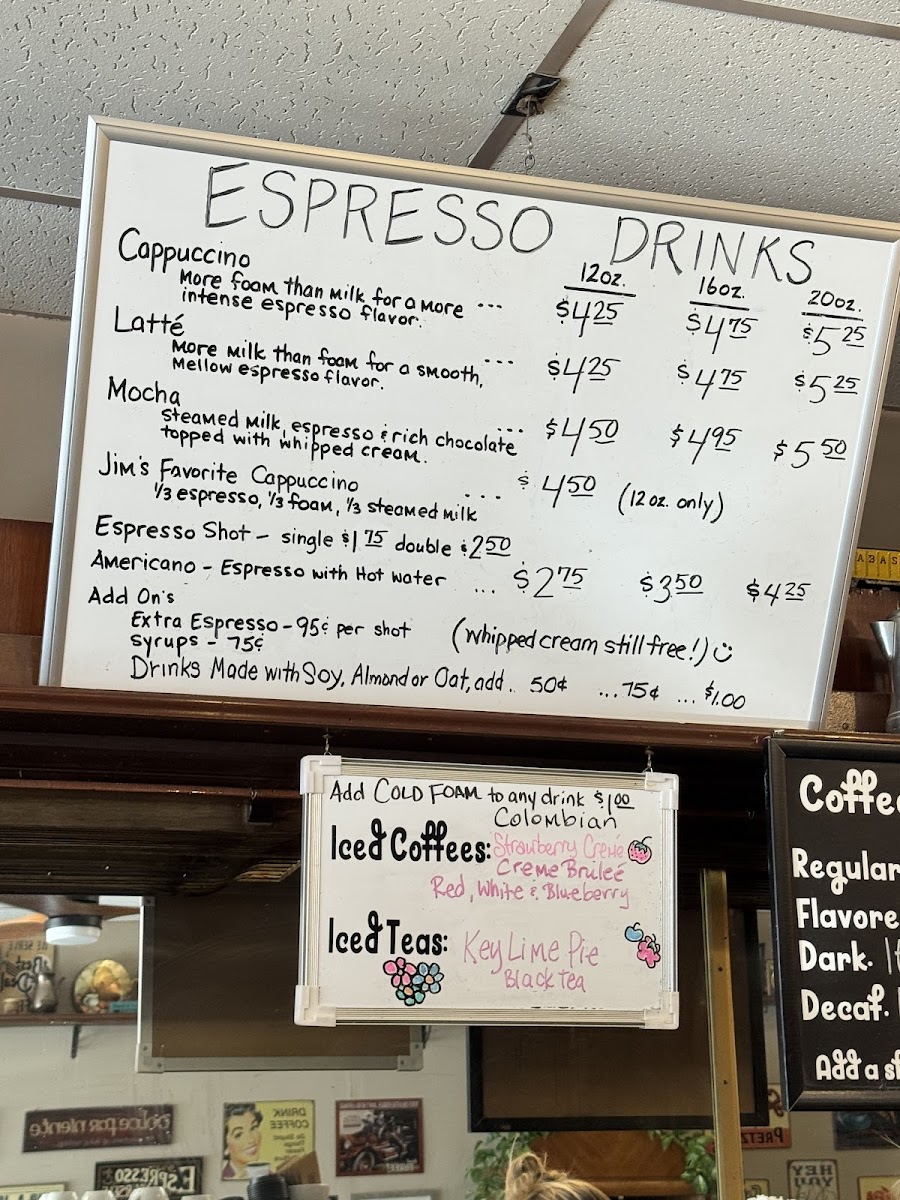 ESPRESSO DRINKS
12oz. 16oz. 20oz.
Cappuccino
More foam than milk for a more ... $4.25 $4.75 $5.25
intense espresso flavor.
Latté
More milk than foam for a smooth, ... $4.25 $4.75 $5.25
Mellow espresso flavor.
Mocha
Steamed milk, espresso & rich chocolate ... $4.50 $4.95 $5.50
topped with whipped cream.
Jim's Favorite Cappuccino ... $4.50 (12 oz. only)
1/3 espresso, 1/3 foam, 1/3 steamed milk
Espresso Shot - single $1.75 double $2.50
Americano - Espresso with Hot water ... $2.75 $3.50 $4.25
Add On's
Extra Espresso - 95¢ per shot (whipped cream still free!)
syrups - 75¢
Drinks Made with Soy, Almond or Oat, add.. 50¢ ...75¢ ... $1.00
Add COLD FOAM to any drink $1.00
Colombian
Iced Coffees: Strawberry Cremé
Creme Bruleé
Red, White & Blueberry
Iced Teas: Key Lime Pie
Black Tea
Regular
Dark.
Decaf.
Add a
DRINK
COFFEE
ESPRESSO
HEY
YOU